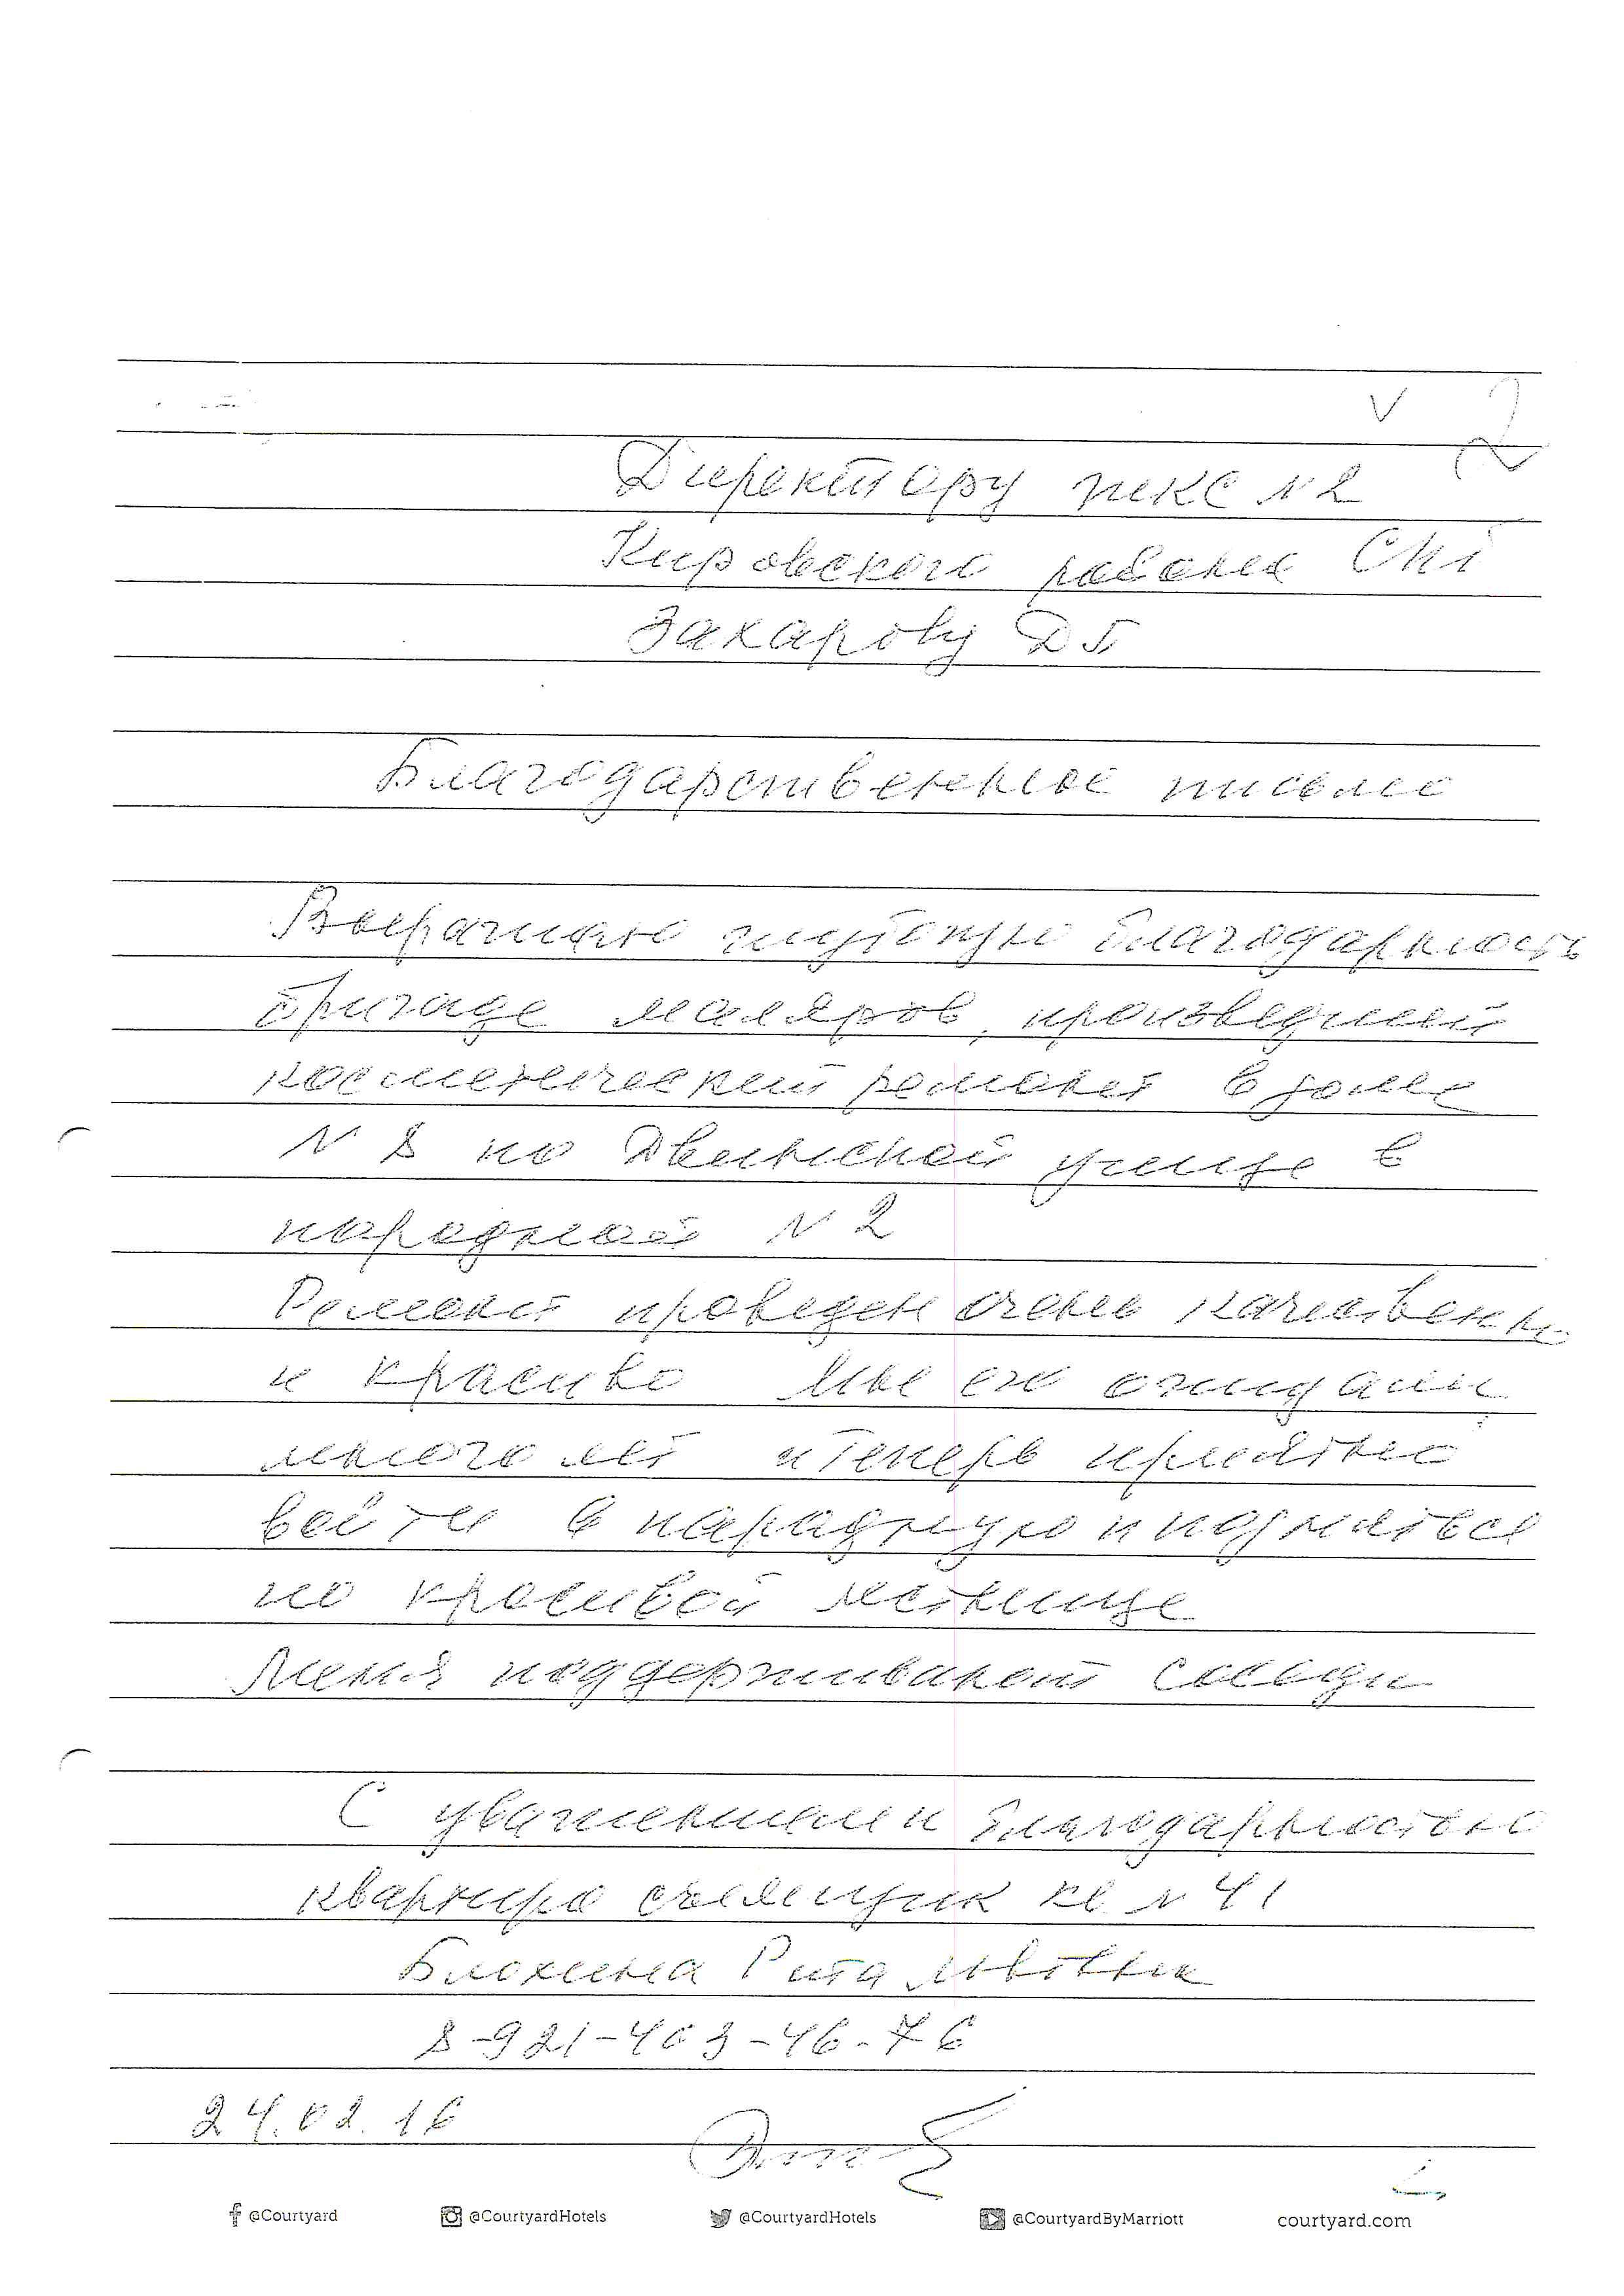 Директору ЖКС №2
Кировского района СПб
Захарову Д Г
Благодарственное письмо
Выражаю глубокую благодарность
бригаде маляров, произведшей
косметический ремонт в доме
№ 8 по Двинской улице в
парадной № 2
Ремонт проведен очень качественно
и красиво Мы его ожидали
много лет и теперь приятно
войти в парадную и подняться
по красивой лестнице
Меня поддерживают соседи
С уважением и благодарностью
квартиросъемщик кв № 41
Блохина Рита Львовна
8-921-403-46-76
24.02.16
@Courtyard @CourtyardHotels @CourtyardHotels @CourtyardByMarriott courtyard.com